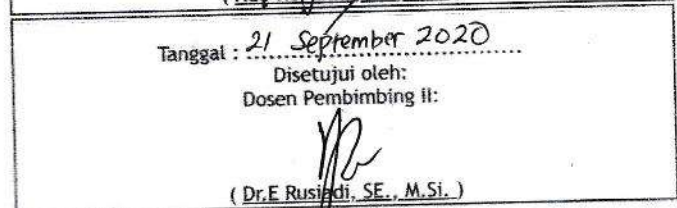 Tanggal : 21 September 2020
Disetujui oleh:
Dosen Pembimbing II:
( Dr.E Rusiadi, SE., M.Si. )